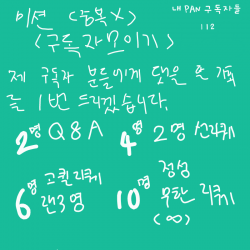 미션 (중복X)
내 PAN 구독자들
112
<구독자모이기>
제 구독자 분들에게 댓글 온
를 1번 드리겠습니다.
2명 Q&A
4명 2명 신리퀘
6명 고퀄리퀘
랜3명
10명 정성
무한 리퀘
(∞)